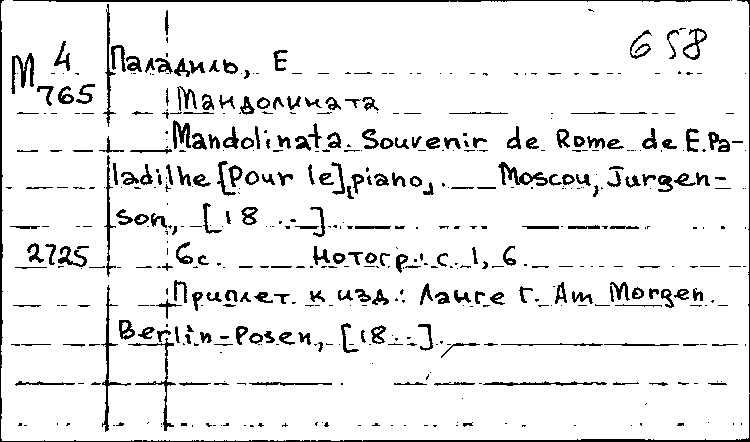 658
М 4
765
Паладиль, Е
Мандолината
Mandolinata. Souvenir de Rome de E. Pa-
ladilhe [Pour le] piano. Moscou, Jurgen-
son, [18 ..]
2725
6 с. Нотогр.: с. 1, 6.
Приплет. к изд.: Ланге Г. Am Morgen.
Berlin-Posen, [18..].